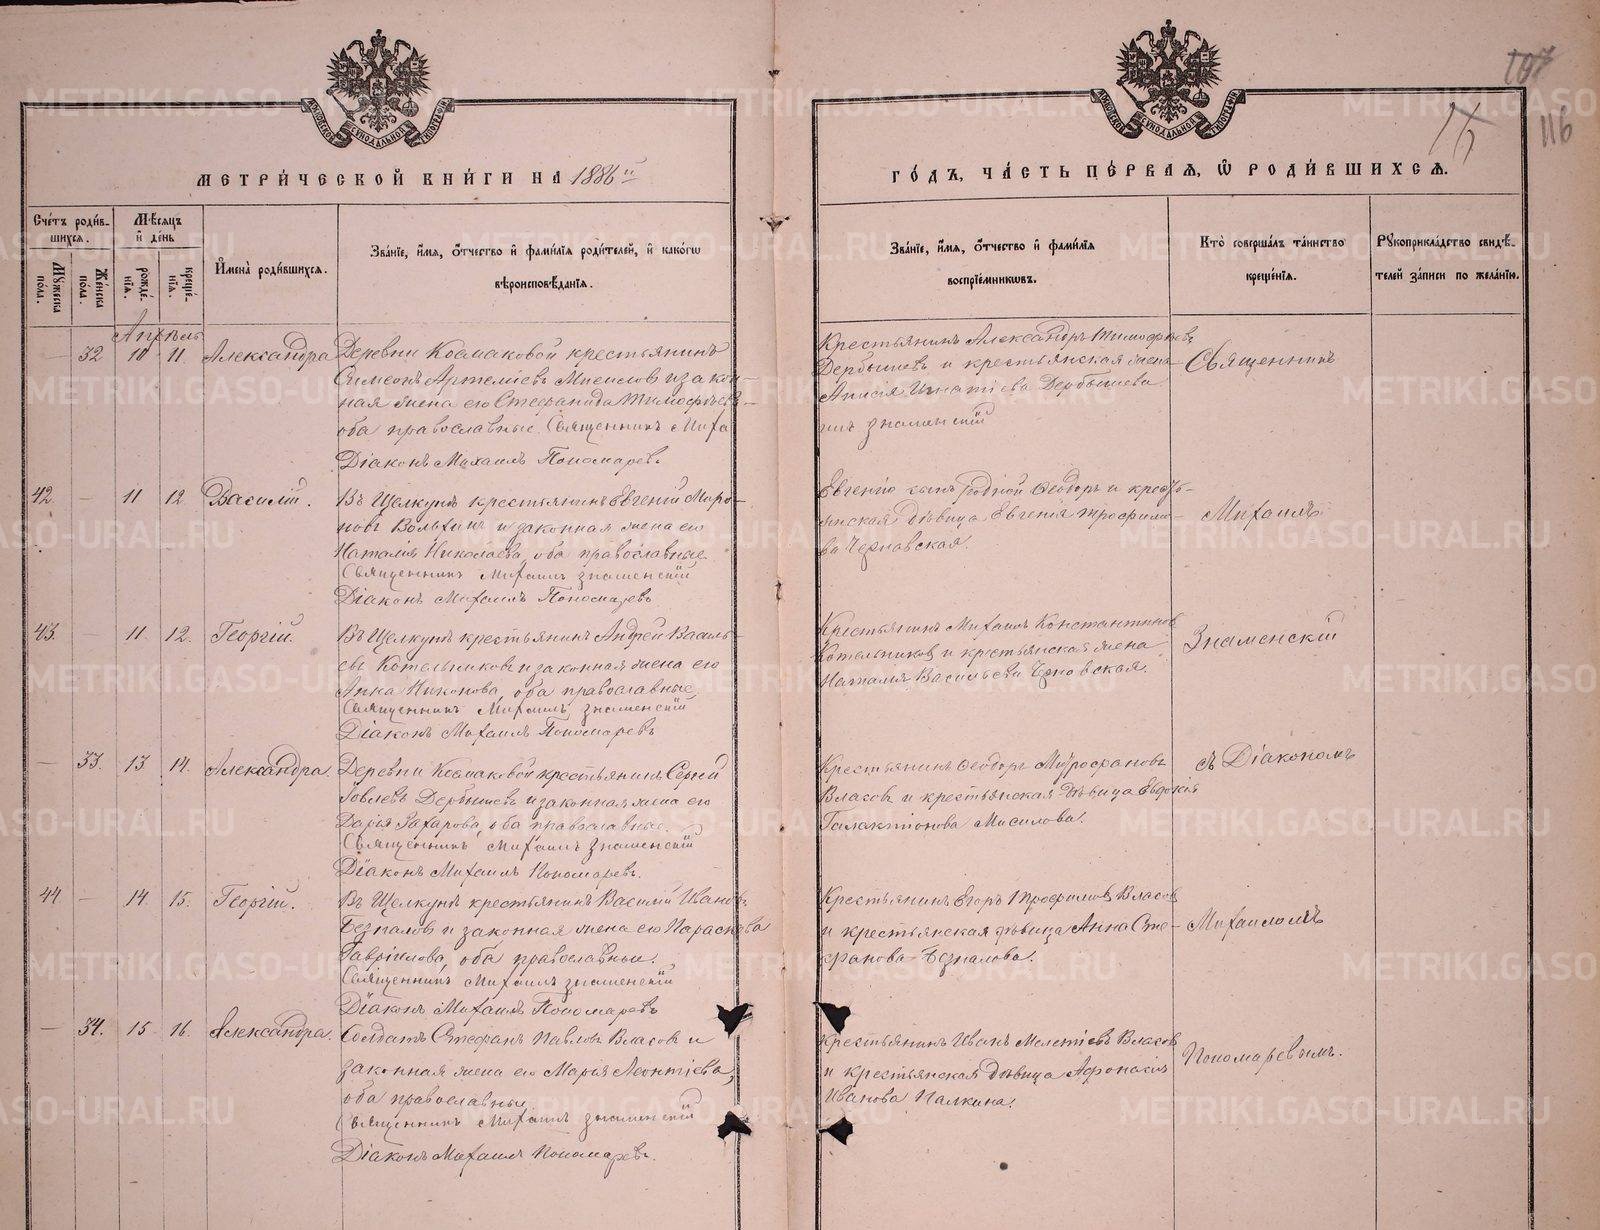 МЕТРИ́ЧЕСКОЙ КНИ́ГИ НА 1886й
ГО́ДЪ, ЧА́СТЬ ПЕ́РВАѦ, Ѡ҆ РОДИ́ВШИХСѦ.
116
Сче́тъ роди́в-
шихсѧ.
Мꙋ́жеска пола.
Же́нска по́ла.
Мѣ́сѧцъ
и҆ де́нь
рожде́нїѧ.
креще́нїѧ.
И҆мена̀ роди́вшихсѧ.
Зва́нїе, и҆́мѧ, ѻ҆́тчество и҆ фами́лїѧ роди́телей, и҆ како́гѡ
вѣроисповѣ́данїѧ.
Зва́нїе, и҆́мѧ, ѻ҆́тчество и҆ фами́лїѧ
воспрїе́мниковъ.
Кто̀ соверша́лъ та́инство
креще́нїѧ.
Рꙋкоприкла́дство свидѣ́-
телей за́писи по жела́нїю.
Апрѣль
— 32 10 11 Александра
Деревни Космаковой крестьянинъ
Симеонъ Артемiевъ Мисиловъ и закон-
ная жена его Стефанида Тимофѣева
оба православные. Священникъ Миха
Дiаконъ Михаилъ Пономаревъ
Крестьянинъ Александръ Тимофѣевъ
Дербышевъ и крестьянская жена
Анисiя Игнатiева Дербышева
илъ Знаменскiй
Священникъ
42 — 11 12 Василiй.
Въ Щелкунѣ крестьянинъ Евгенiй Миро-
новъ Вольхинъ и законная жена его
Наталiя Николаева, оба православные
Священникъ Михаилъ Знаменскiй
Дiаконъ Михаилъ Пономаревъ
Евгенiю сынъ родной Ѳеодоръ и кресть-
янская дѣвица Евгенiя Трофимо-
ва Черновская.
Михаилъ
43. — 11. 12. Георгiй.
Въ Щелкунѣ крестьянинъ Андрей Василь-
евъ Котельниковъ и законная жена его
Анна Никонова, оба православные,
Священникъ Михаилъ Знаменскiй
Дiаконъ Михаилъ Пономаревъ
Крестьянинъ Михаилъ Константиновъ
Котельниковъ и крестьянская жена
Наталiя Васильева Черновская.
Знаменскiй
— 33. 13 14. Александра.
Деревни Космаковой крестьянинъ Сергiй
Iовлевъ Дербышевъ и законная жена его
Дарiя Захарова, оба православные.
Священникъ Михаилъ Знаменскiй
Дiаконъ Михаилъ Пономаревъ.
Крестьянинъ Ѳеодоръ Митрофановъ
Власовъ и крестьянская дѣвица Евдокiя
Галактiонова Мисилова.
съ Дiакономъ
44 — 14. 15. Георгiй.
Въ Щелкунѣ крестьянинъ Василiй Ивановъ
Безпаловъ и законная жена его Параскева
Гаврiилова, оба православные.
Священникъ Михаилъ Знаменскiй
Дiаконъ Михаилъ Пономаревъ
Крестьянинъ Егоръ Трофимовъ Власовъ
и крестьянская дѣвица Анна Сте-
фанова Безпалова.
Михаиломъ
— 34. 15 16. Александра.
Солдатъ Стефанъ Павловъ Власовъ и
законная жена его Марья Леонтiева,
оба православные
Священникъ Михаилъ Знаменскiй
Дiаконъ Михаилъ Пономаревъ.
Крестьянинъ Иванъ Мелетiевъ Власовъ
и крестьянская дѣвица Афонасiя
Иванова Палкина.
Пономаревымъ.
METRIKI.GASO-URAL.RU